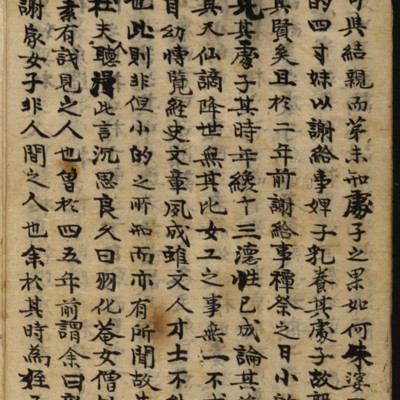 可與結親而第未知處子之果如何朱婆
的四寸妹以謝給事婢子乳養其處子故
其賢矣且於二年前謝給事禫祭之日小
見其處子其時年纔十三德性已成論其
真天仙謫降世無其比女工之事無一不
自幼博覽經史文章夙成雖文人才士不
也此則非但小的之所知而亦有所聞故
杜夫人聽得此言沉思良久曰羽化菴女僧
素有識見之人也曾於四五年前謂余曰
謝家女子非人間之人也余於其時為姪